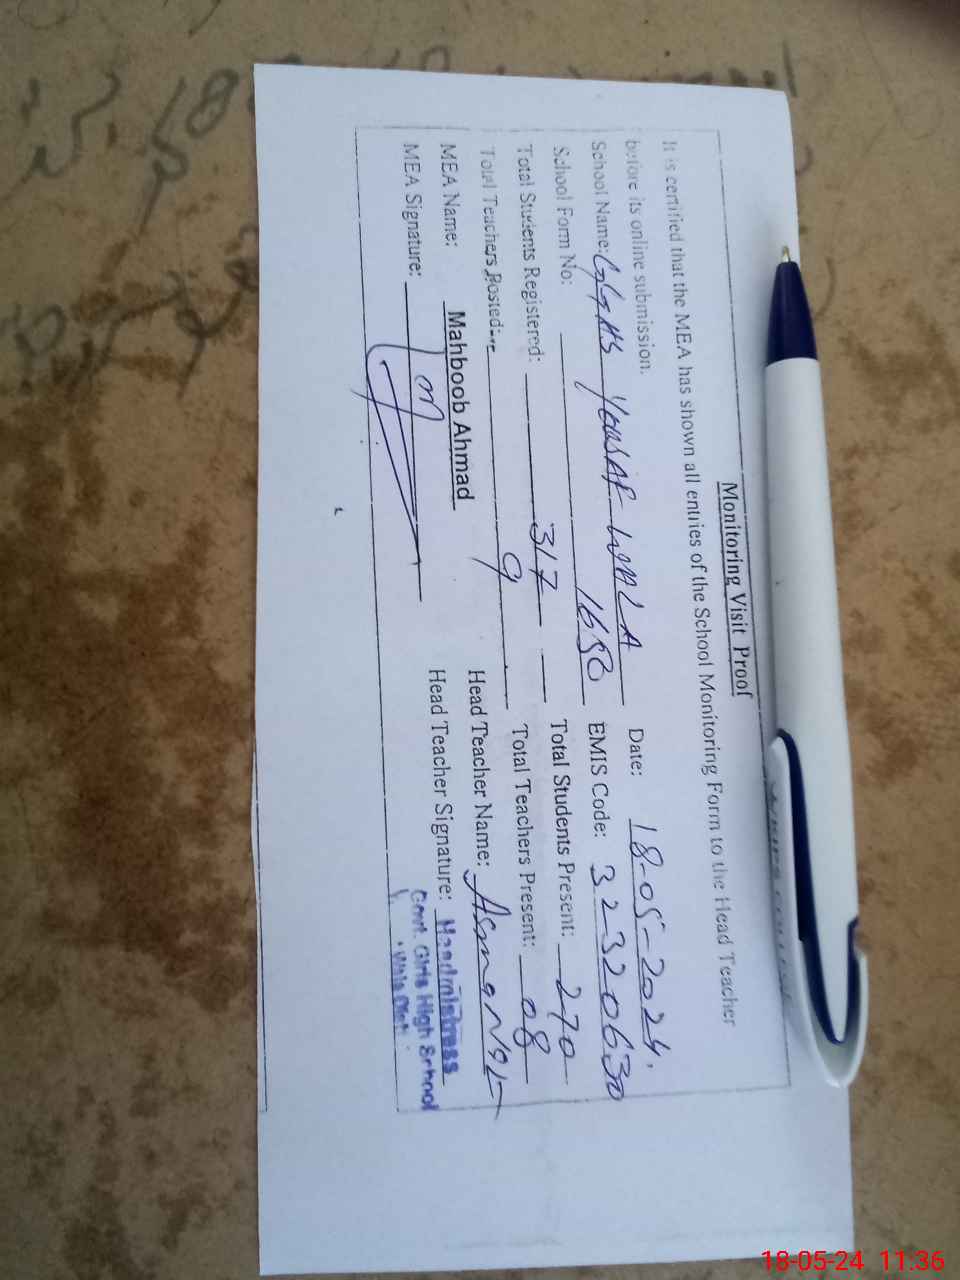 Monitoring Visit Proof
It is certified that the MEA has shown all entries of the School Monitoring Form to the Head Teacher
before its online submission.
School Name: GGHS YOUSAF WALA Date: 18-05-2024.
School Form No: 1658 EMIS Code: 32320630
Total Students Registered: 317 Total Students Present: 270
Total Teachers Posted: 9 Total Teachers Present: 08
MEA Name: Mahboob Ahmad Head Teacher Name: Asma
MEA Signature: Head Teacher Signature: Headmistress
Govt. Girls High School
18-05-24 11:36